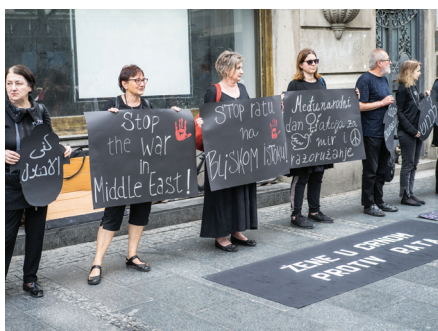 Stop
the War
in
Middle East!
STOP ratu
na
BLISKOM ISTOKU!
Međunarodni
dan akcija za
mir i
razoružanje
ŽENE U CRNOM
PROTIV RATA